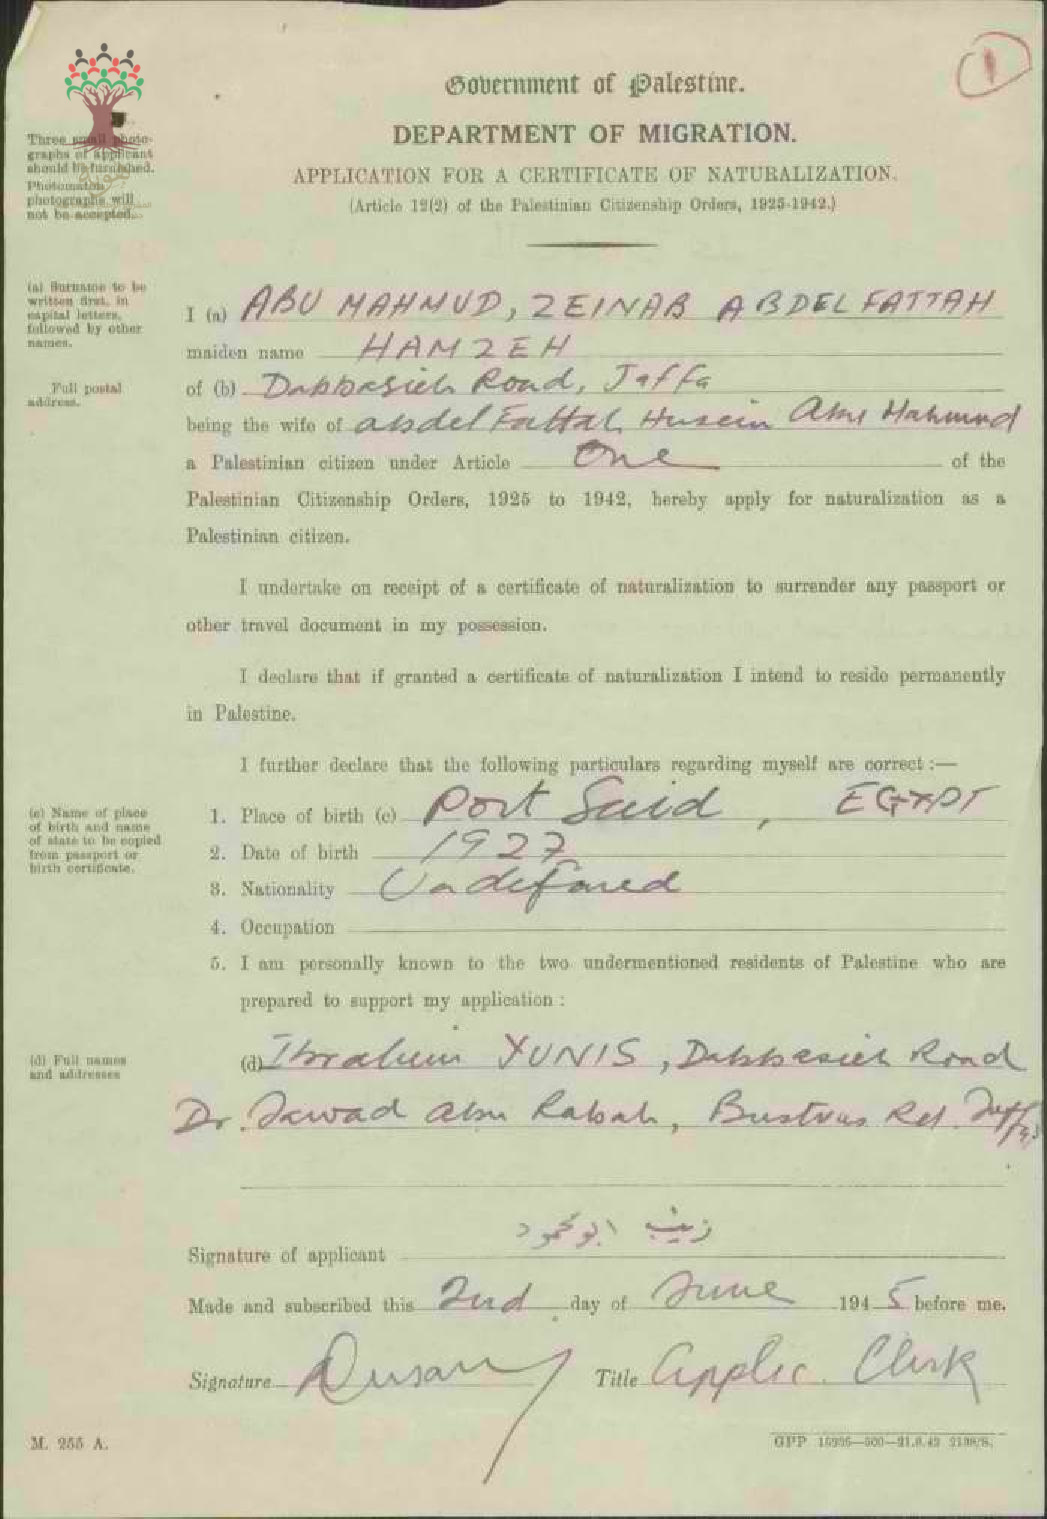 1
Government of Palestine.
DEPARTMENT OF MIGRATION.
APPLICATION FOR A CERTIFICATE OF NATURALIZATION.
(Article 12(2) of the Palestinian Citizenship Orders, 1925-1942.)
Three small photo-
graphs of applicant
should be furnished.
Photomaton
photographs will
not be accepted.
(a) Surname to be
written first, in
capital letters,
followed by other
names.
I (a) ABU MAHMUD, ZEINAB ABDEL FATTAH
maiden name HAMZEH
Full postal
address.
of (b) Dabbasieh Road, Jaffa
being the wife of abdel Fattah Husein Abu Mahmud
a Palestinian citizen under Article One of the
Palestinian Citizenship Orders, 1925 to 1942, hereby apply for naturalization as a
Palestinian citizen.
I undertake on receipt of a certificate of naturalization to surrender any passport or
other travel document in my possession.
I declare that if granted a certificate of naturalization I intend to reside permanently
in Palestine.
I further declare that the following particulars regarding myself are correct :—
(c) Name of place
of birth and name
of state to be copied
from passport or
birth certificate.
1. Place of birth (c) Port Said, EGYPT
2. Date of birth 1927
3. Nationality Undefined
4. Occupation
5. I am personally known to the two undermentioned residents of Palestine who are
prepared to support my application :
(d) Full names
and addresses
(d) Ibrahim YUNIS, Dabbasieh Road
Dr. Jawad Abu Rabah, Bustrus Rd. Jaffa
زينب ابو محمود
Signature of applicant
Made and subscribed this 2nd day of June 1945 before me.
Signature Title Applic. Clerk
M. 255 A.
GPP